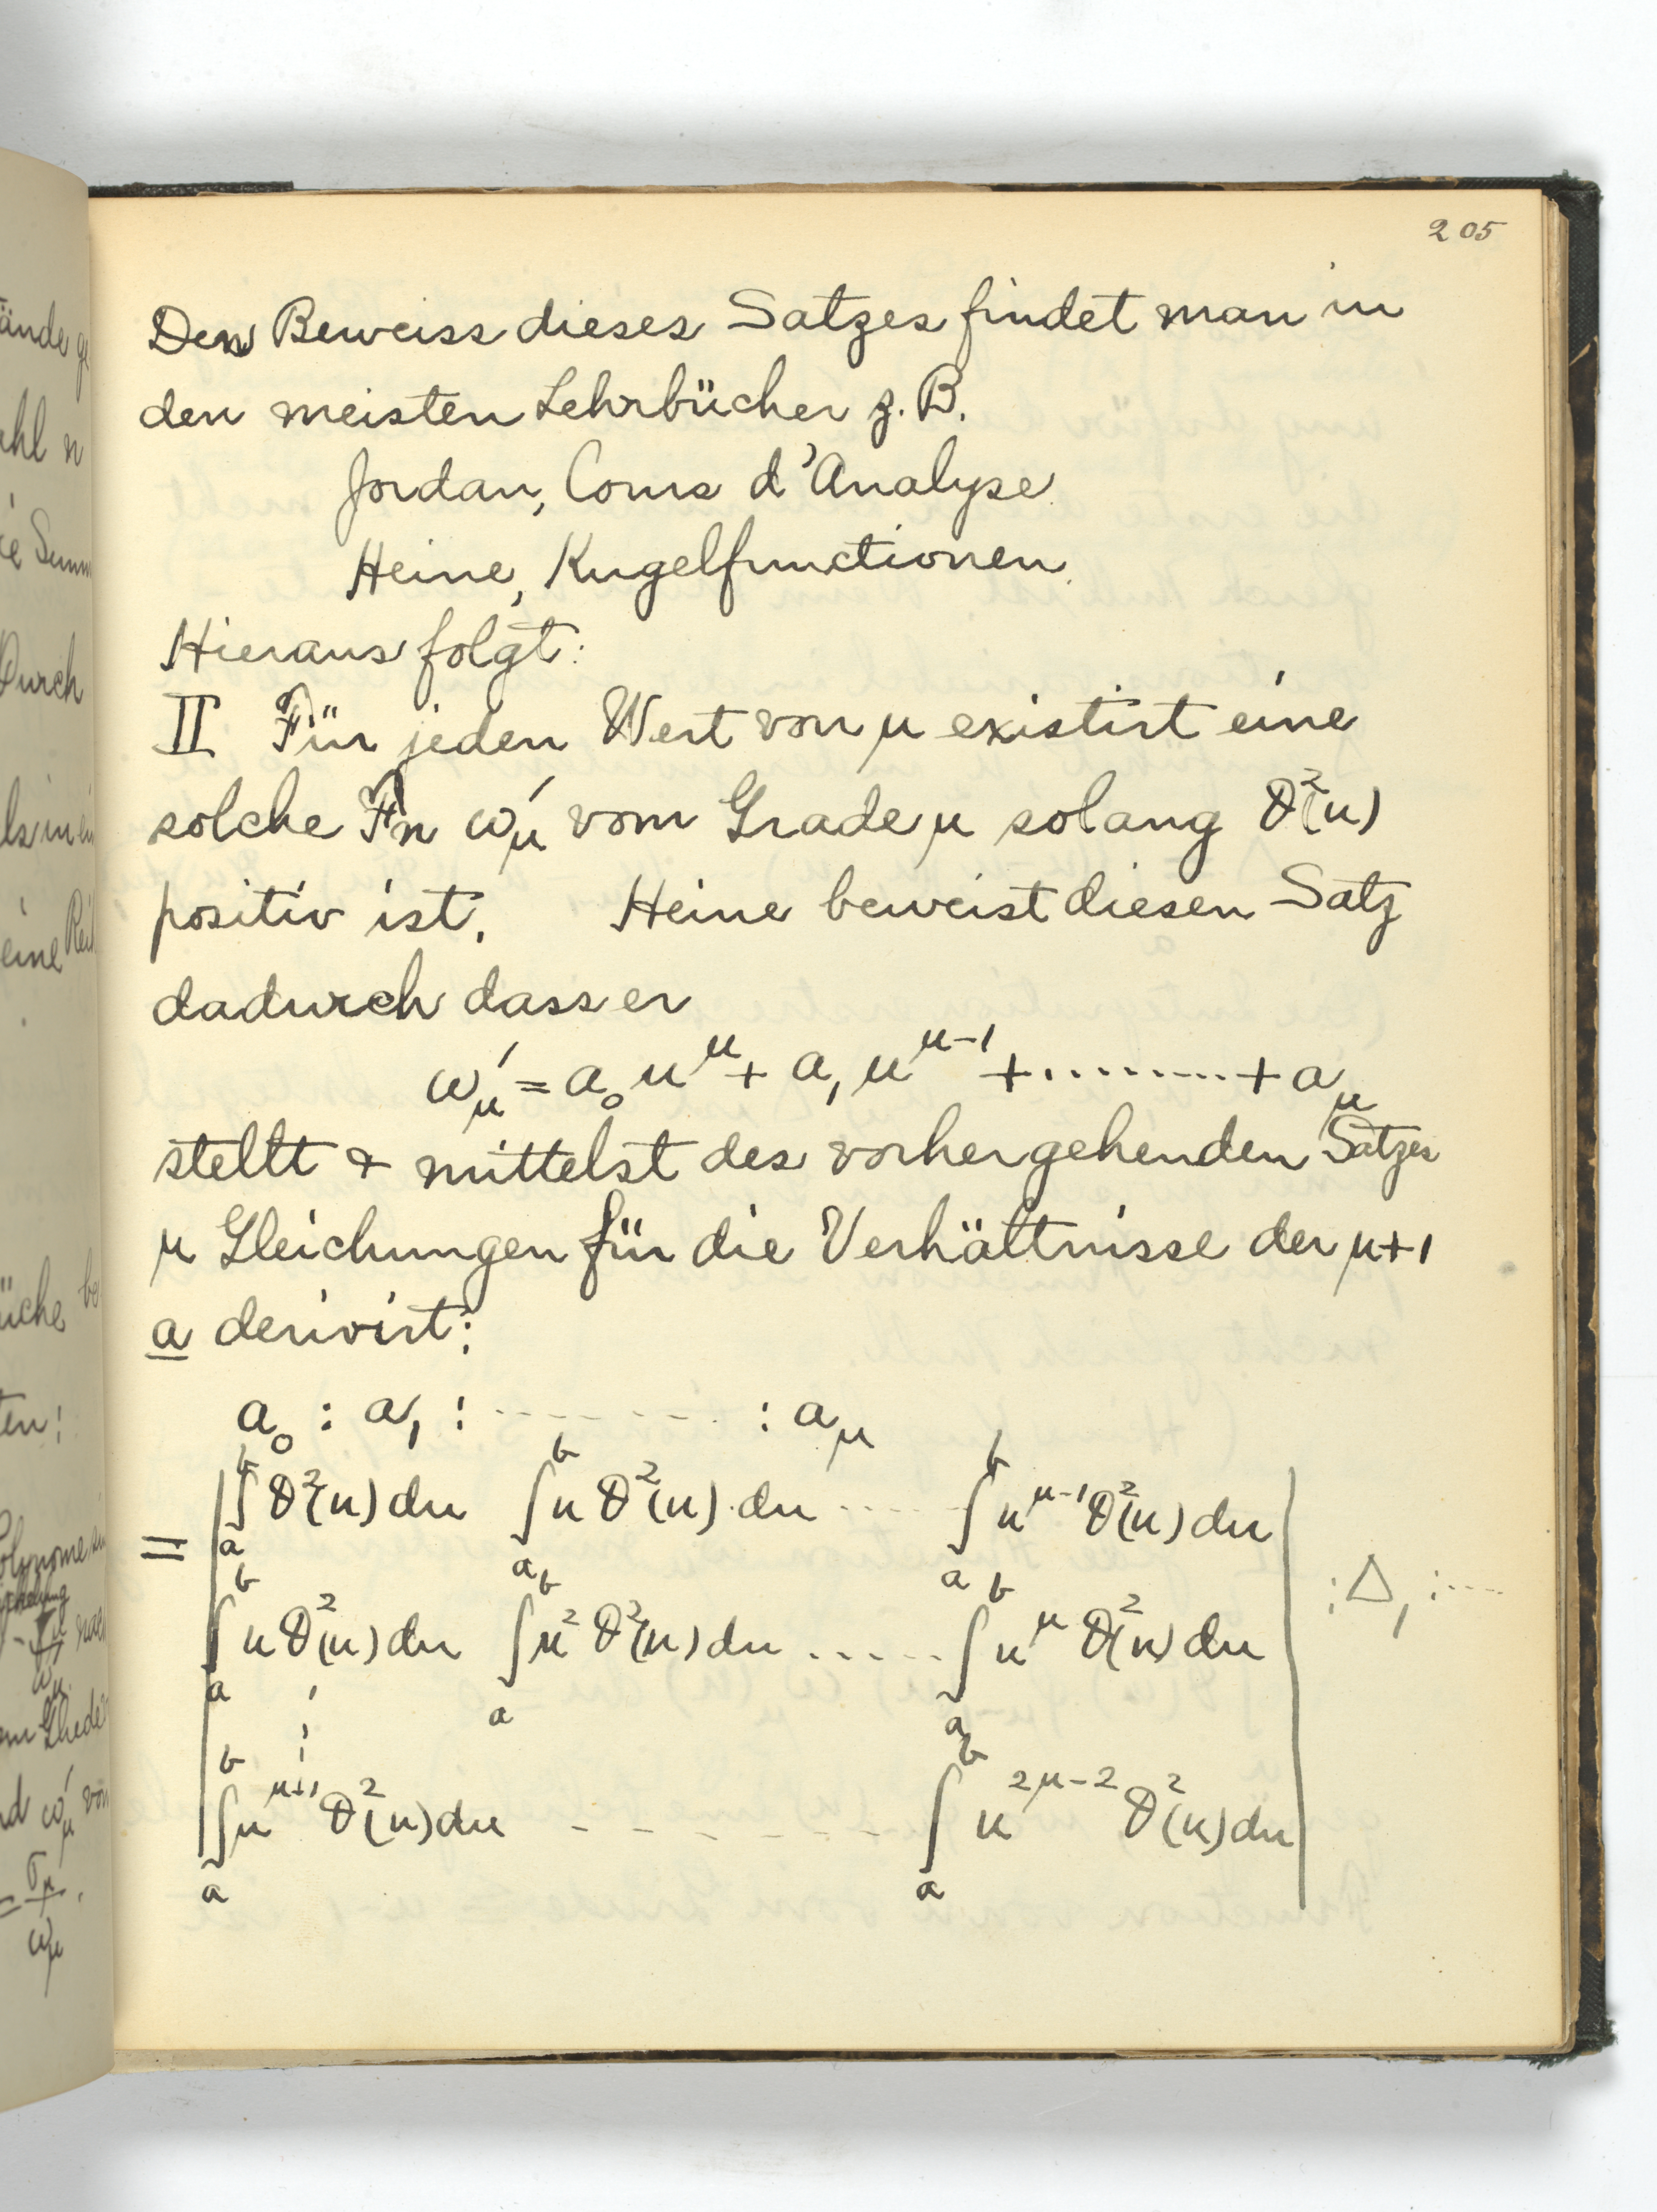 205
Den Beweiss dieses Satzes findet man in
den meisten Lehrbücher z. B.
Jordan, Cours d'Analyse
Heine, Kugelfunctionen
Hieraus folgt:
II Für jeden Wert von μ existirt eine
solche Fn ω'_μ vom Grade μ solang ϑ²(u)
positiv ist. Heine beweist diesen Satz
dadurch dass er
ω'_μ = a₀ u^μ + a₁ u^{μ-1} + ......... + a_μ
stellt & mittelst des vorhergehenden Satzes
μ Gleichungen für die Verhältnisse der μ+1
a derivirt:
a₀ : a₁ : ........ : a_μ
= | ∫_a^b ϑ²(u) du ∫_a^b u ϑ²(u) du ..... ∫_a^b u^{μ-1} ϑ²(u) du |
∫_a^b u ϑ²(u) du ∫_a^b u² ϑ²(u) du ..... ∫_a^b u^μ ϑ²(u) du | : Δ₁ : ....
⋮
∫_a^b u^{μ+1} ϑ²(u) du - - - - - - - ∫_a^b u^{2μ-2} ϑ²(u) du |